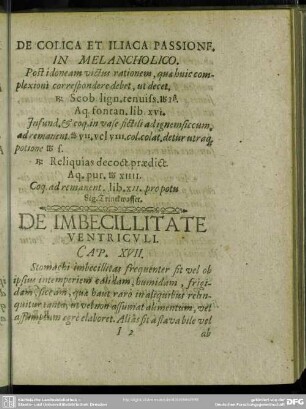 DE COLICA ET ILIACA PASSIONE.
IN MELANCHOLICO.
Post idoneam victus rationem, quæ huic com-
plexioni correspondere debet, ut decet.
℞ Scob. lign. tenuiss. ℔ iß.
Aq. fontan. lib. xvi.
Infund. & coq. in vase fictili ad ignem siccum,
ad remanent. ℔ vii. vel viii. col. colat. detur utraq.
potione ℔ ſ.
℞ Reliquias decoct. prædict.
Aq. pur. ℔ xiiii.
Coq. ad remanent. lib. xii. pro potu
Sig. trinckwasser.
DE IMBECILLITATE
VENTRICVLI.
CAP. XVII.
Stomachi imbecillitas frequenter fit vel ob
ipsius intemperiem calidam, humidam, frigi-
dam, siccam, quæ haut raro in aliquibus relin-
quitur tanta, ut vel non assumat alimentum, vel
assumptum egre elaboret. Aliàs fit à flava bile vel
I 2 ab